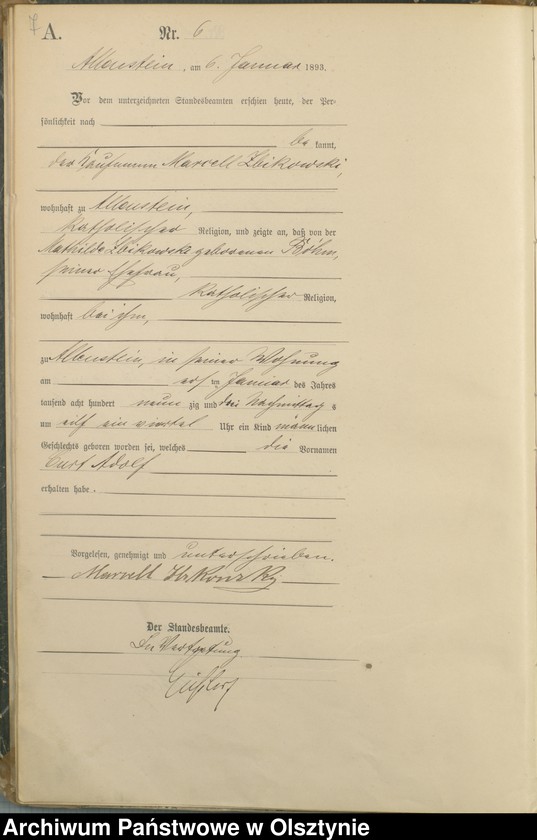 7 A. Nr. 6
Allenstein, am 6. Januar 1893.
Vor dem unterzeichneten Standesbeamten erschien heute, der Per-
sönlichkeit nach
be kannt,
der Kaufmann Marcell Zbikowski,
wohnhaft zu Allenstein,
katholischer Religion, und zeigte an, daß von der
Mathilde Zbikowski geborenen Böhm,
seiner Ehefrau,
katholischer Religion,
wohnhaft bei ihm,
zu Allenstein, in seiner Wohnung
am ersten Januar des Jahres
tausend acht hundert neunzig und drei Nachmittags
um elf ein viertel Uhr ein Kind männlichen
Geschlechts geboren worden sei, welches die Vornamen
Curt Adolf
erhalten habe.
Vorgelesen, genehmigt und unterschrieben.
Marcell Zbikowski
Der Standesbeamte.
In Vertretung
Archiwum Państwowe w Olsztynie